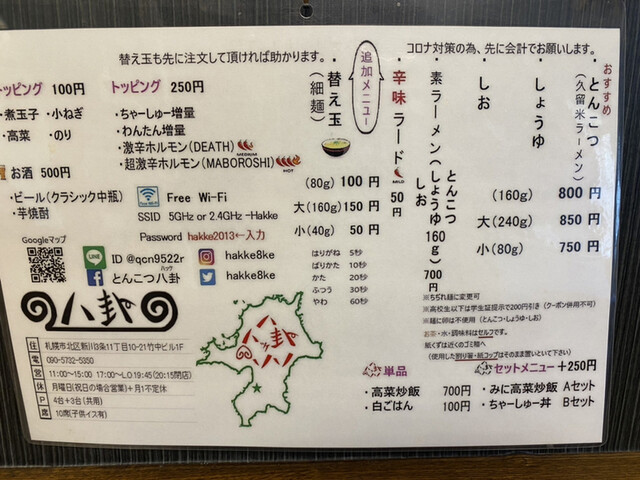 替え玉も先に注文して頂ければ助かります。
コロナ対策の為、先に会計でお願いします。
おすすめ
とんこつ
(久留米ラーメン)
しょうゆ
しお
(160g) 800 円
大(240g) 850 円
小(80g) 750 円
素ラーメン(しょうゆ160g)
とんこつ
しお
700円
辛味ラード MILD
50円
追加メニュー
替え玉
(細麺)
(80g) 100 円
大(160g) 150 円
小(40g) 50 円
はりがね 5秒
ばりかた 10秒
かた 20秒
ふつう 30秒
やわ 60秒
トッピング 100円
・煮玉子 ・小ねぎ
・高菜 ・のり
トッピング 250円
・ちゃーしゅー増量
・わんたん増量
・激辛ホルモン(DEATH) MEDIUM
・超激辛ホルモン(MABOROSHI) HOT
お酒 500円
・ビール(クラシック中瓶)
・芋焼酎
Free Wi-Fi
SSID 5GHz or 2.4GHz -Hakke
Password hakke2013←入力
Googleマップ
LINE
ID @qcn9522r
hakke8ke
とんこつ八卦
ハッケ
hakke8ke
八卦
住 札幌市北区新川3条11丁目10-21竹中ビル1F
電 090-5732-5350
営 11:00〜15:00 17:00〜L.O 19:45(20:15閉店)
休 月曜日(祝日の場合営業)+月1不定休
P 4台+3台(共用)
席 10席(子供イス有)
八卦
※ちぢれ麺に変更可
※高校生以下は学生証提示で200円引き(クーポン併用不可)
※麺に卵は不使用(とんこつ・しょうゆ・しお)
お茶・水・調味料はセルフです。
紙くずは近くのゴミ箱へ
(使用した割り箸・紙コップはそのまま置いといて下さい)
単品
・高菜炒飯 700円
・白ごはん 100円
セットメニュー+250円
・みに高菜炒飯 Aセット
・ちゃーしゅー丼 Bセット